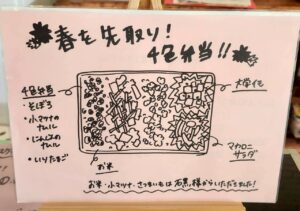 春を先取り!
4色弁当!!
4色弁当
・そぼろ
・小マツナの
ナムル
・にんじんの
ナムル
・いりたまご
大学イモ
マカロニ
サラダ
お米
お米・小マツナ・さつまいもは石黒様からいただきました!